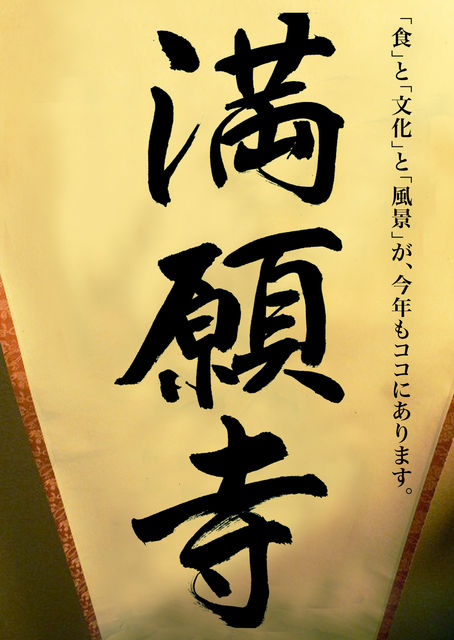 「食」と「文化」と「風景」が、今年もココにあります。
満願寺